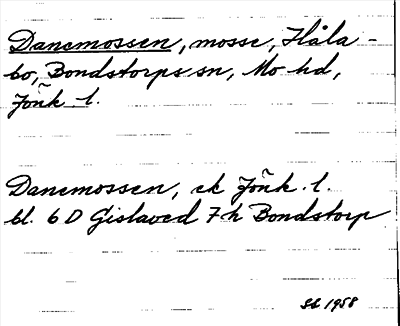 Danemossen, mosse, Håla-
bo, Bondstorps sn, Mo hd,
Jönk. l.
Danemossen, ek Jönk. l.
bl. 6 D Gislaved 7 h Bondstorp
1958